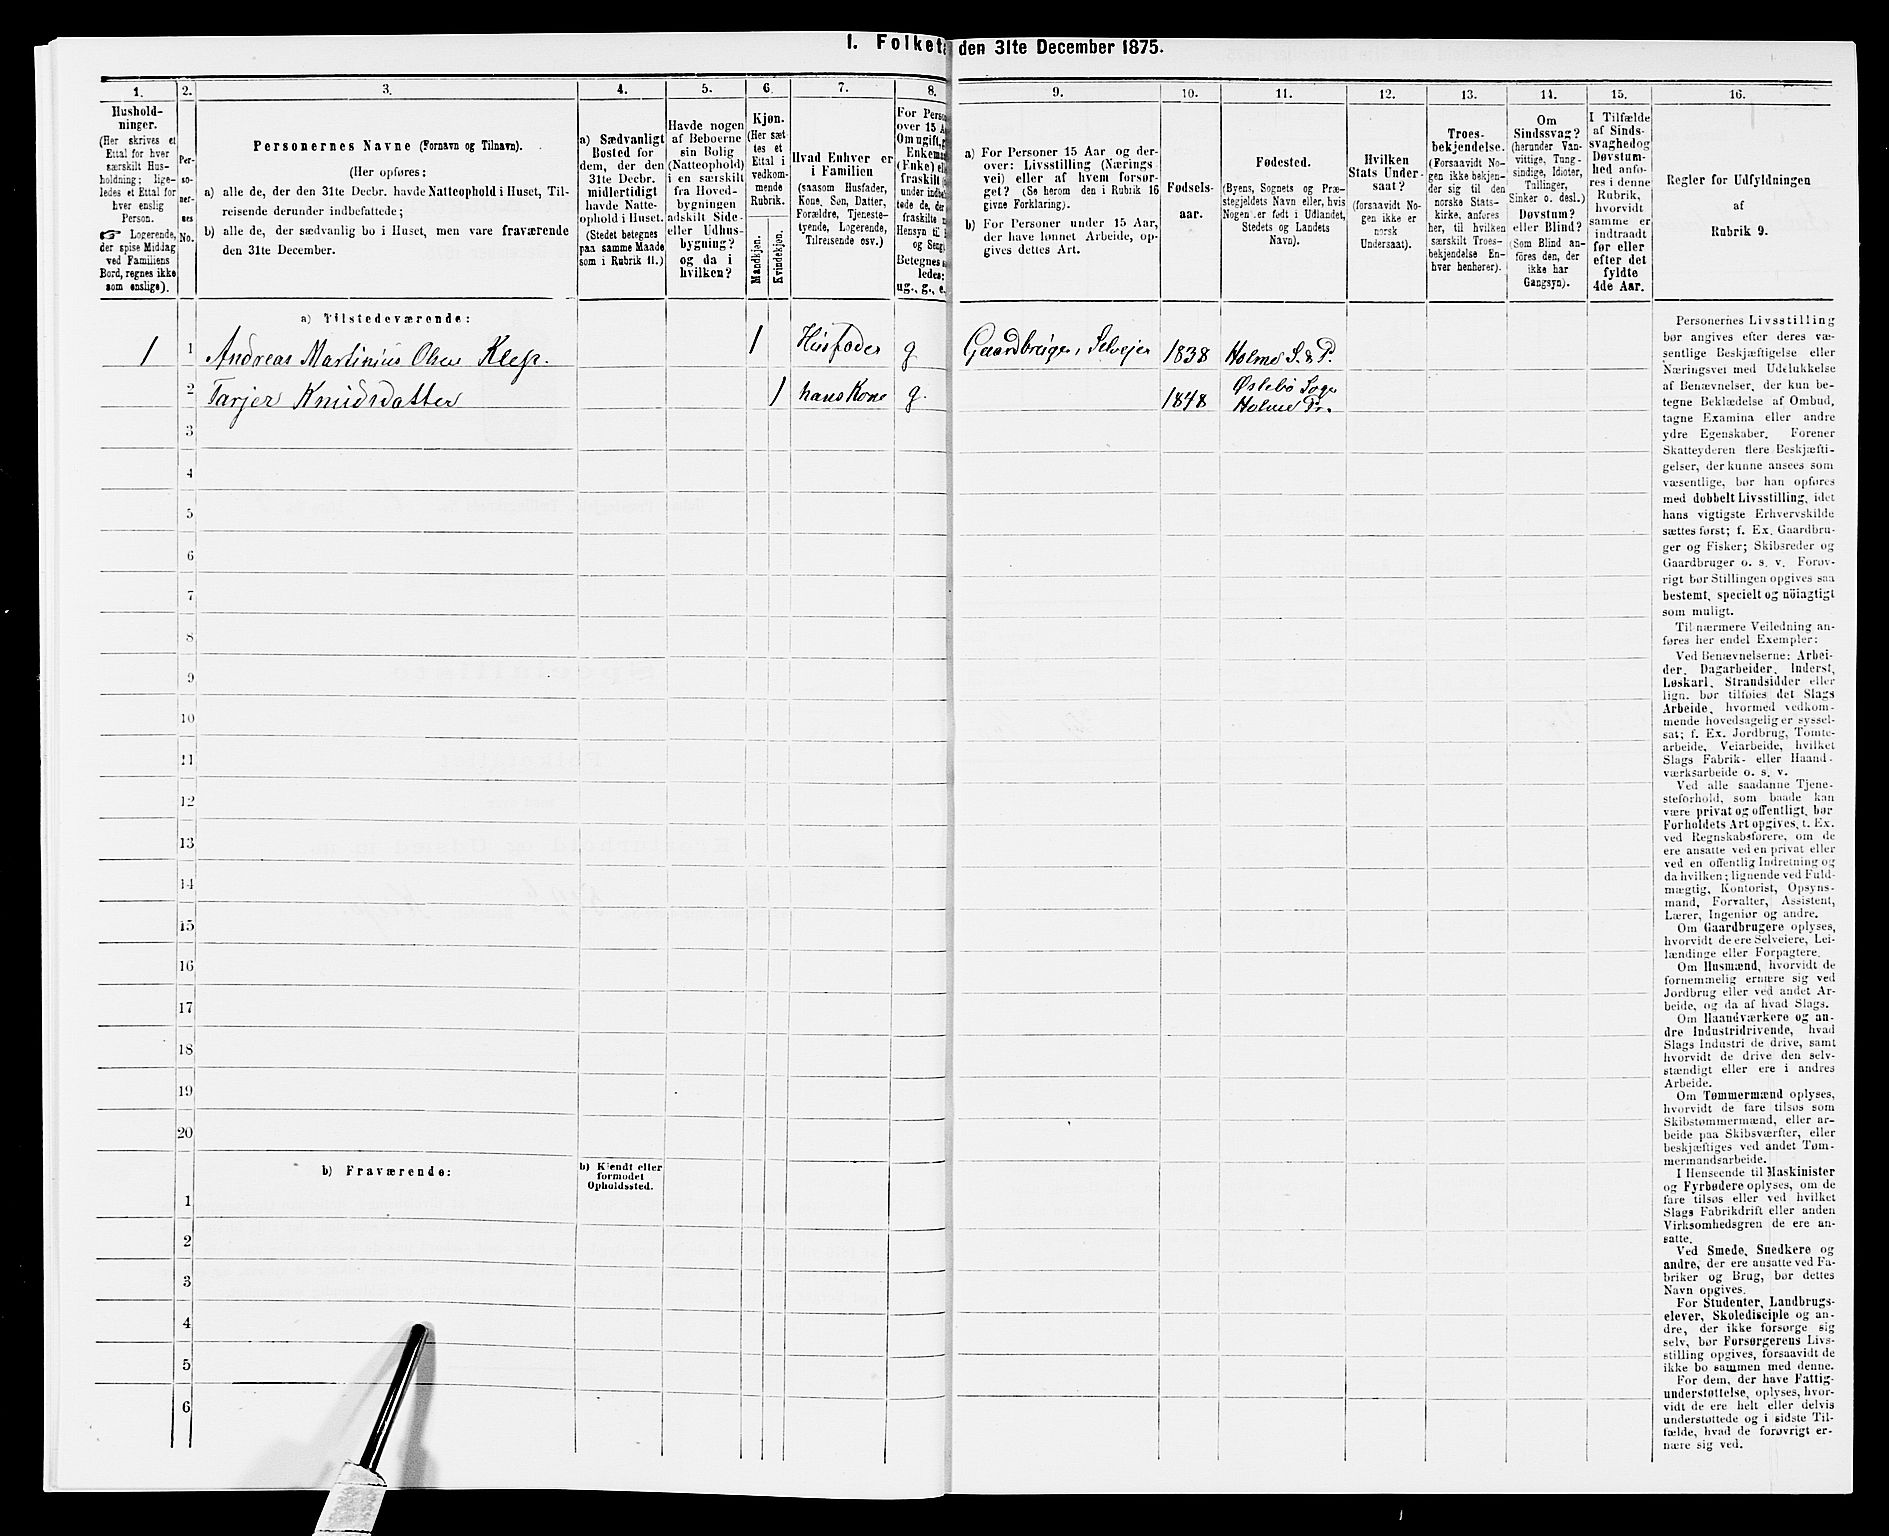 I. Folketæ
den 31te December 1875.
1.
2.
3.
4.
5.
6.
7.
8.
Hushold-
ninger.
(Her skrives et
Ettal for hver
særskilt Hus-
holdning; lige-
ledes et Ettal for
hver enslig
Person.
☞ Logerende,
der spise Middag
ved Familiens
Bord, regnes ikke
som enslige).
Per-
so-
ner-
nes
No.
Personernes Navne (Fornavn og Tilnavn).
(Her opføres:
a) alle de, der den 31te Decbr. havde Natteophold i Huset, Til-
reisende derunder indbefattede;
b) alle de, der sædvanlig bo i Huset, men vare fraværende
den 31te December.
a) Sædvanligt
Bosted for
dem, der den
31te Decbr.
midlertidigt
havde Natte-
ophold i Huset.
(Stedet betegnes
paa samme Maade
som i Rubrik 11.)
Havde nogen
af Beboerne
sin Bolig
(Natteophold)
i en særskilt
fra Hoved-
bygningen
adskilt Side-
eller Udhus-
bygning?
og da i
hvilken?
Kjøn.
(Her sæt
tes et
Ettal i
vedkom-
mende
Rubrik.
Mandkjøn.
Kvindekjøn.
Hvad Enhver er
i Familien
(saasom Husfader,
Kone, Søn, Datter,
Forældre, Tjeneste-
tyende, Logerende,
Tilreisende osv.)
For Person
over 15 A
Om ugift, g
Enkema
(Enke) el
fraskilt (
under indbe
tede de, de
fraskilte
Hensyn til
og Seng
Betegnes s
ledes:
ug., g., e.
a) Tilstedeværende:
1 1 Andreas Martinius Olsen Klep. 1 Husfader g
2 Tarjer Knudsdatter 1 hans Kone g.
3
4
5
6
7
8
9
10
11
12
13
14
15
16
17
18
19
20
b) Fraværende:
b) Kjendt eller
formodet
Opholdssted.
1
2
3
4
5
6
9.
10.
11.
12.
13.
14.
15.
16.
a) For Personer 15 Aar og der-
over: Livsstilling (Nærings
vei) eller af hvem forsør-
get? (Se herom den i Rubrik 16
givne Forklaring).
b) For Personer under 15 Aar,
der have lønnet Arbeide, op-
gives dettes Art.
Fødsels-
aar.
Fødested.
(Byens, Sognets og Præ-
stegjeldets Navn eller, hvis
Nogen er født i Udlandet,
Stedets og Landets
Navn).
Hvilken
Stats Under-
saat?
(forsaavidt No-
gen ikke er
norsk
Undersaat).
Troes-
bekjendelse.
(Forsaavidt No-
gen ikke bekjen-
der sig til den
norske Stats-
kirke, anføres
her, til hvilken
særskilt Troes-
bekjendelse En-
hver henhører).
Om
Sindssvag?
(herunder Van-
vittige, Tung-
sindige, Idioter,
Tullinger,
Sinker o. desl.)
Døvstum?
eller Blind?
(Som Blind an-
føres den, der
ikke har
Gangsyn).
I Tilfælde
af Sinds-
svaghed og
Døvstum-
hed anfø-
res i denne
Rubrik,
hvorvidt
samme er
indtraadt
før eller
efter det
fyldte
4de Aar.
Regler for Udfyldningen
af
Rubrik 9.
Gaardbruger, Selvejer 1838 Holme S. & P.
1848 Øslebø Sogn
Holme Pr.
Personernes Livsstilling
bør angives efter deres væ-
sentlige Beskjæftigelse eller
Næringsvei med Udelukkelse
af Benævnelser, der kun be-
tegne Beklædelse af Ombud,
tagne Examina eller andre
ydre Egenskaber. Forener
Skatteyderen flere Beskjæfti-
gelser, der kunne ansees som
væsentlige, bør han opføres
med dobbelt Livsstilling, idet
hans vigtigste Erhvervskilde
sættes først; f. Ex. Gaardbru-
ger og Fisker; Skibsreder og
Gaardbruger o. s. v. Forøv-
rigt bør Stillingen opgives saa
bestemt, specielt og nøiagtigt
som muligt.
Til nærmere Veiledning an-
føres her endel Exempler:
Ved Benævnelserne: Arbei-
der, Dagarbeider, Inderst,
Løskarl, Strandsidder eller
lign. bør tilføies det Slags
Arbeide, hvormed vedkom-
mende hovedsagelig er syssel-
sat; f. Ex. Jordbrug, Tomte-
arbeide, Veiarbeide, hvilket
Slags Fabrik- eller Haand-
værksarbeide o. s. v.
Ved alle saadanne Tjene-
steforhold, som baade kan
være privat og offentligt, bør
Forholdets Art opgives, t. Ex.
ved Regnskabsførere, om de
ere ansatte ved en privat eller
ved en offentlig Indretning og
da hvilken; lignende ved Fuld-
mægtig, Kontorist, Opsyns-
mand, Forvalter, Assistent,
Lærer, Ingeniør og andre.
Om Gaardbrugere oplyses,
hvorvidt de ere Selveiere, Lei-
lændinge eller Forpagtere.
Om Husmænd, hvorvidt de
fornemmelig ernære sig ved
Jordbrug eller ved andet Ar-
beide, og da af hvad Slags.
Om Haandværkere og an-
dre Industridrivende, hvad
Slags Industri de drive, samt
hvorvidt de drive den selv-
stændigt eller ere i andres
Arbeide.
Om Tømmermænd oplyses,
hvorvidt de fare tilsøs som
Skibstømmermænd, eller ar-
beide paa Skibsværfter, eller
beskjæftiges ved andet Tøm-
mermandsarbeide.
I Henseende til Maskinister
og Fyrbødere oplyses, om de
fare tilsøs eller ved hvilket
Slags Fabrikdrift eller anden
Virksomhedsgren de ere an-
satte.
Ved Smede, Snedkere og
andre, der ere ansatte ved Fa-
briker og Brug, bør dettes
Navn opgives.
For Studenter, Landbrugs-
elever, Skoledisciple og an-
dre, der ikke forsørge sig
selv, bør Forsørgerens Livs-
stilling opgives, forsaavidt de
ikke bo sammen med denne.
For dem, der have Fattig-
understøttelse, oplyses, hvor-
vidt de ere helt eller delvis
understøttede og i sidste Til-
fælde, hvad de forøvrigt er-
nære sig ved.